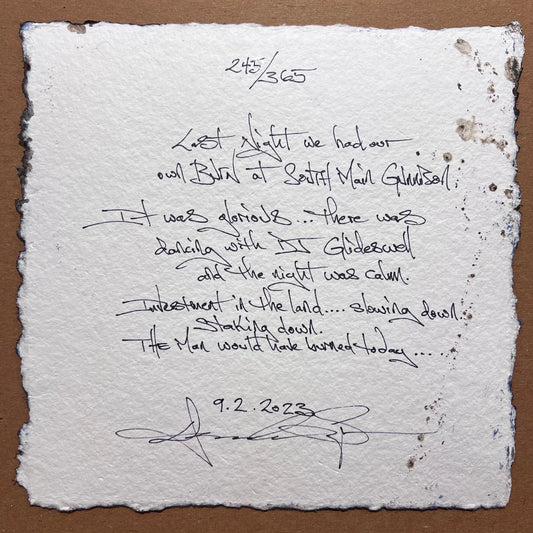 245/365
Last Night we had our
own Burn at South Main Gunnison.
It was glorious... There was
dancing with DJ Glideswell
and the night was calm.
Investment in the land.... slowing down.
Staking down.
The Man would have burned today.....
9.2.2023